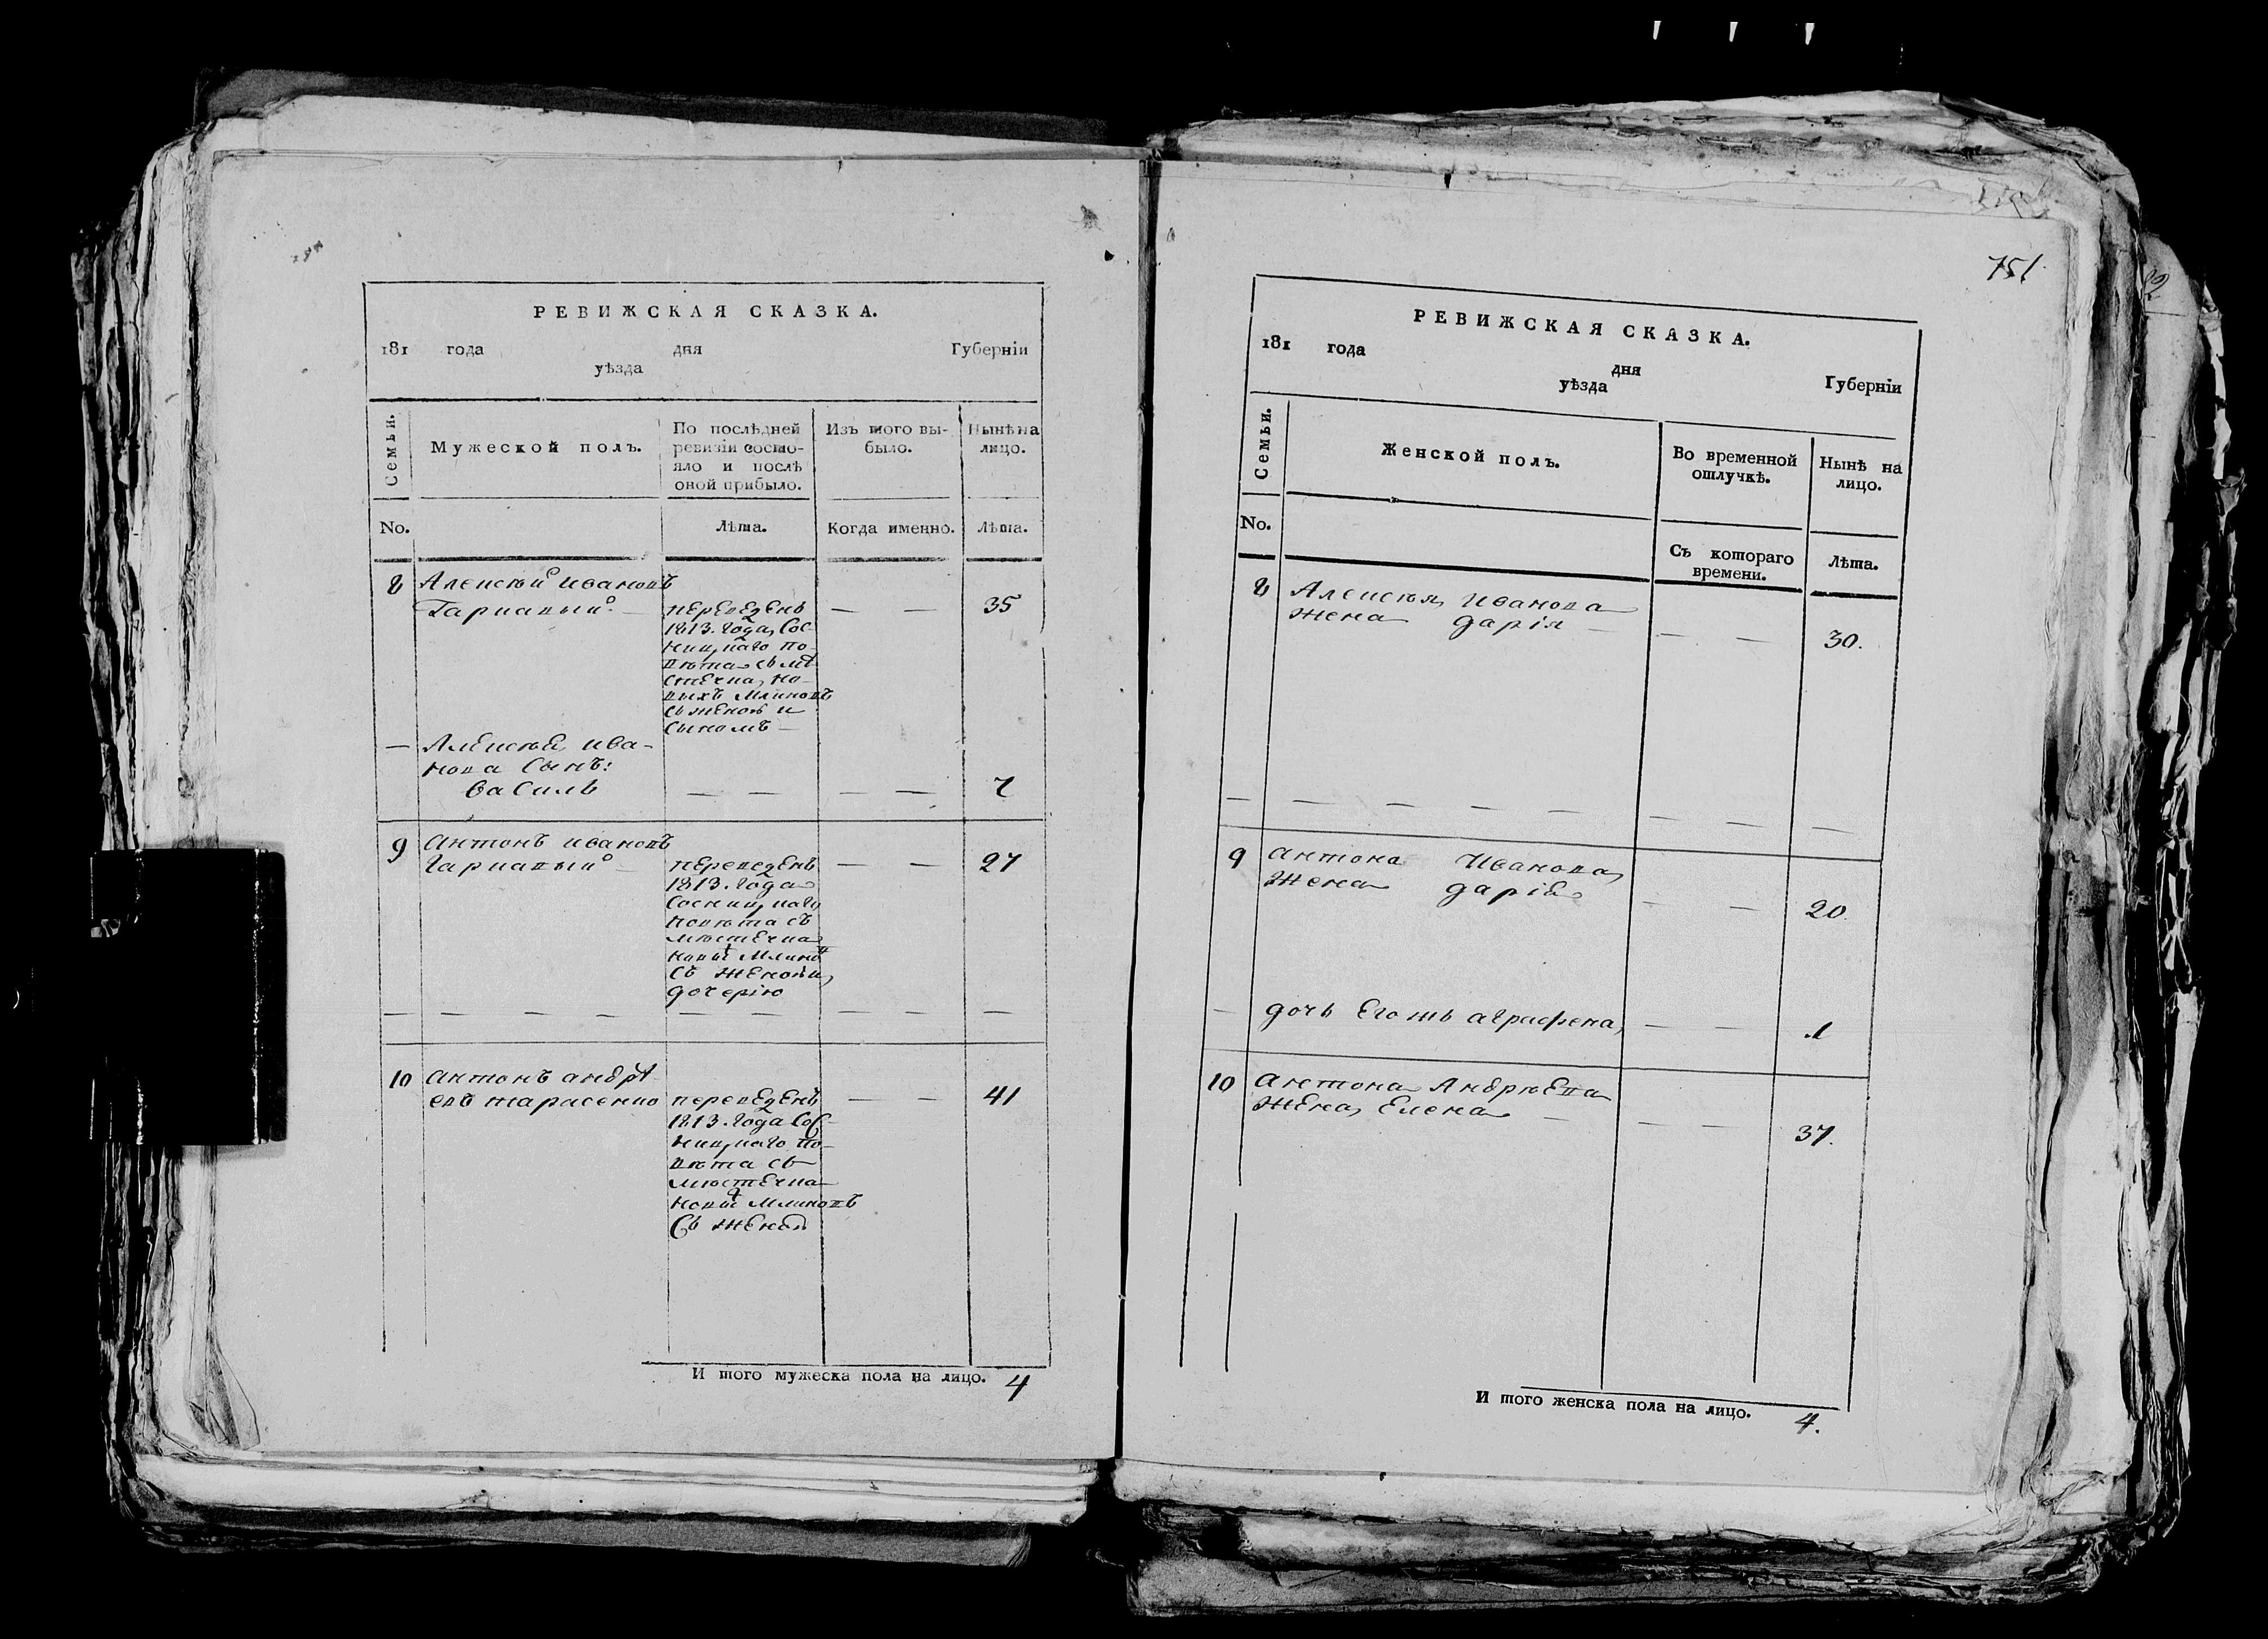 РЕВИЖСКАЯ СКАЗКА.
181 года дня Губерніи
уѣзда
Семьи.
Мужеской полъ.
По послѣдней
ревизіи состо-
яло и послѣ
оной прибыло.
Изъ того вы-
было.
Нынѣ на
лицо.
No.
Лѣта.
Когда именно.
Лѣта.
8 Алексѣй Ивановъ
Гаркавый — переведенъ — — 35
1813. года, Сос-
ницкаго по-
вѣта съ мѣ-
стечка, но-
выхъ Млиновъ
съ женою и
сыномъ —
— Алексѣя, Ива-
нова Сынъ:
Василь — — — — 7
9 Антонъ Ивановъ
Гаркавый — переведенъ — — 27
1813. года
Сосницкаго
повѣта съ
мѣстечка
новых Млинов
съ женою и
дочерію
— — — — — — — — —
10 Антонъ Андрѣ
евъ Тарасенко переведенъ — — 41
1813. года Сос-
ницкаго по-
вѣта съ
мѣстечка
новых Млиновъ
Съ женой
И того мужеска пола на лицо. 4
751
РЕВИЖСКАЯ СКАЗКА.
181 года
дня
уѣзда Губерніи
Семьи.
Женской полъ.
Во временной
отлучкѣ.
Нынѣ на
лицо.
No.
Съ котораго
времени.
Лѣта.
8 Алексѣя, Иванова
жена Дарія — — — 30.
— — — — — — — —
9 Антона Иванова,
Жена Дарія — — 20.
— дочь Его жъ Аграфена, — — 1
10 Антона Андрѣева
Жена, Елена — — — 37.
И того женска пола на лицо. 4.